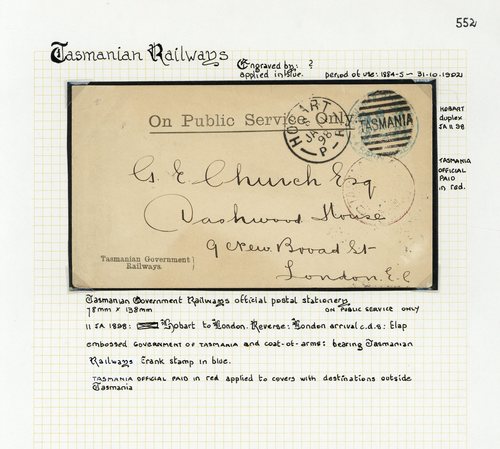 552
Tasmanian Railways
Engraved by: ?
applied in blue.
period of use: 1884-5 – 31-10-1902
On Public Service Only.
HOBART
JA 11
98
P
TASMANIA
HOBART
duplex
JA 11 98
TASMANIA
OFFICIAL
PAID
in red.
G. E. Church Esq
Dashwood House
9 New Broad St
London. E.C
Tasmanian Government
Railways.
Tasmanian Government Railways official postal stationery
78mm x 138mm
ON PUBLIC SERVICE ONLY
11 JA 1898: Hobart to London. Reverse: London arrival c.d.s: flap
embossed GOVERNMENT OF TASMANIA and coat-of-arms: bearing Tasmanian
Railways frank stamp in blue.
TASMANIA OFFICIAL PAID in red applied to covers with destinations outside
Tasmania